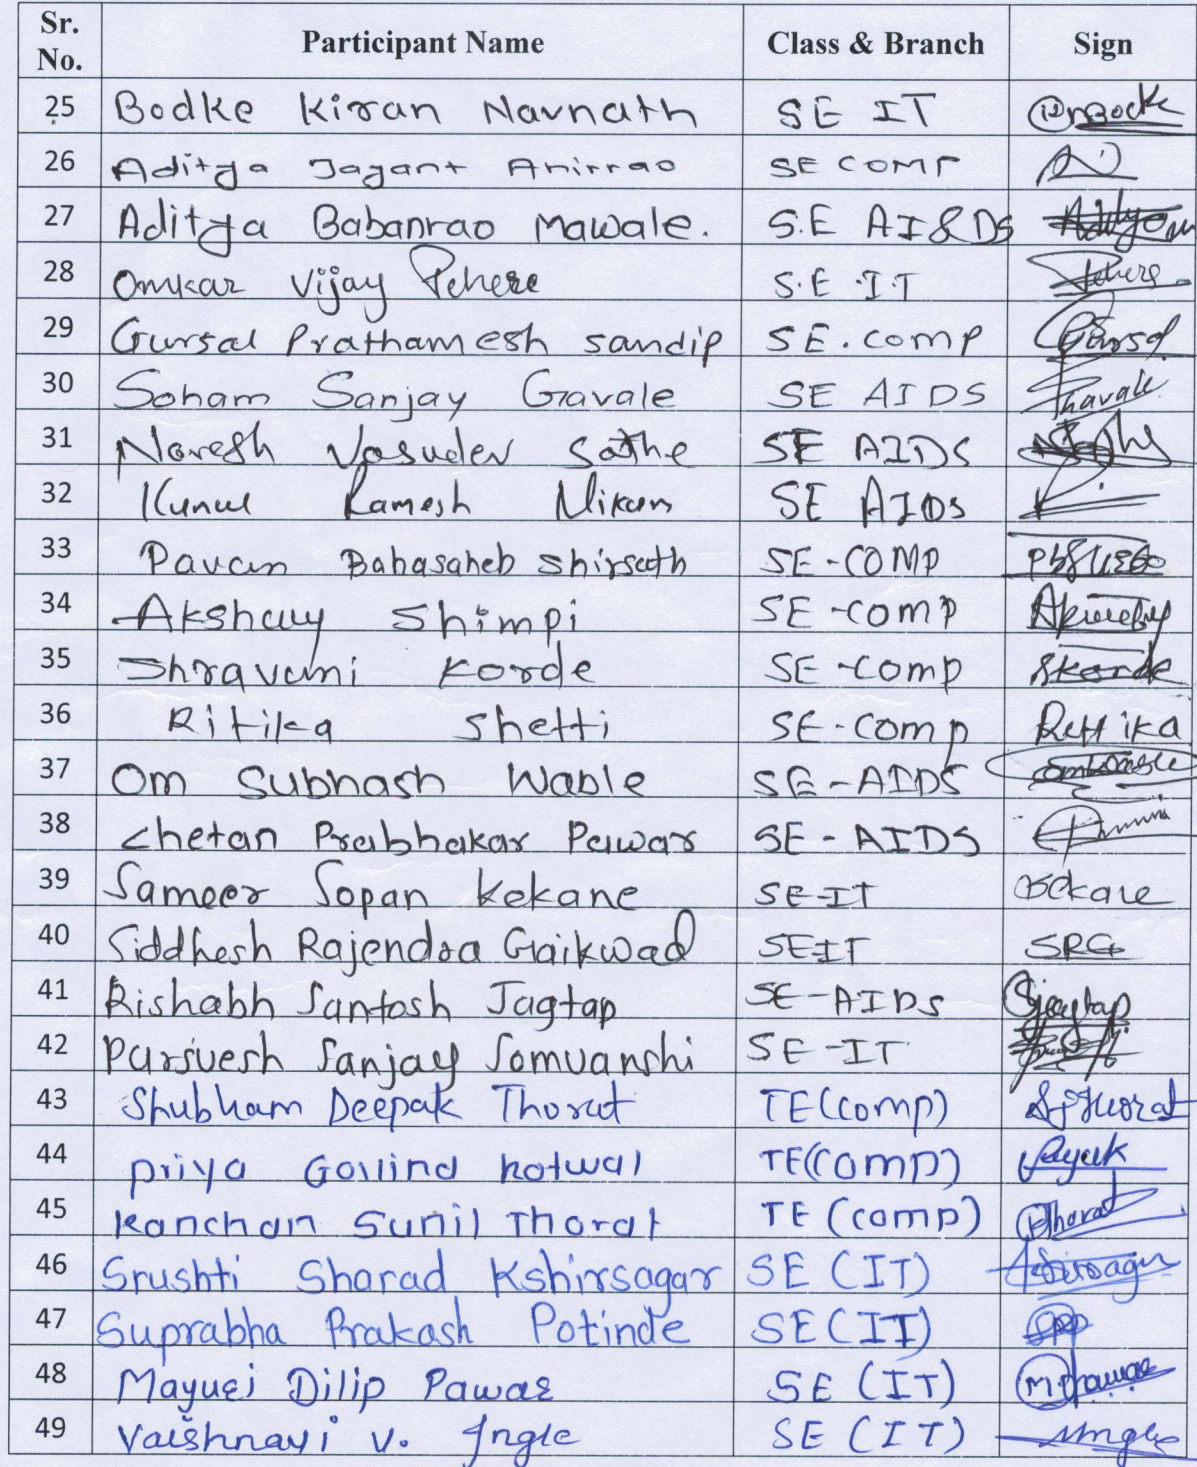 Sr. No. Participant Name Class & Branch Sign
25 Bodke Kiran Navnath SE IT
26 Aditya Jayant Ahirrao SE COMP
27 Aditya Babanrao Mawale. S.E AI&DS
28 Omkar Vijay Pehere S.E.I.T
29 Gursal Prathamesh sandip SE.comp Gursal
30 Soham Sanjay Gavale SE AIDS Gavale
31 Naresh Vasudev Sathe SE AIDS
32 Kunal Ramesh Nikam SE AIDS
33 Pavan Babasaheb Shirsath SE-COMP
34 Akshay Shimpi SE-comp
35 Shravani Korde SE-comp SKorde
36 Ritika Shetti SE-comp Rittika
37 Om Subhash Wable SE-AIDS
38 Chetan Prabhakar Pawar SE-AIDS
39 Sameer Sopan Kekane SE-IT
40 Siddhesh Rajendra Gaikwad SEIT SRG
41 Rishabh Santosh Jagtap SE-AIDS Jagtap
42 Parsvesh Sanjay Somvanshi SE-IT
43 Shubham Deepak Thorat TE(comp) Thorat
44 priya Govind kotwal TE(comp)
45 Kanchan Sunil Thorat TE (comp) Thorat
46 Srushti Sharad Kshirsagar SE (IT)
47 Suprabha Prakash Potinde SE(IT) SPP
48 Mayuri Dilip Pawar SE (IT) MPawar
49 Vaishnavi V. Ingle SE (IT) Ingle